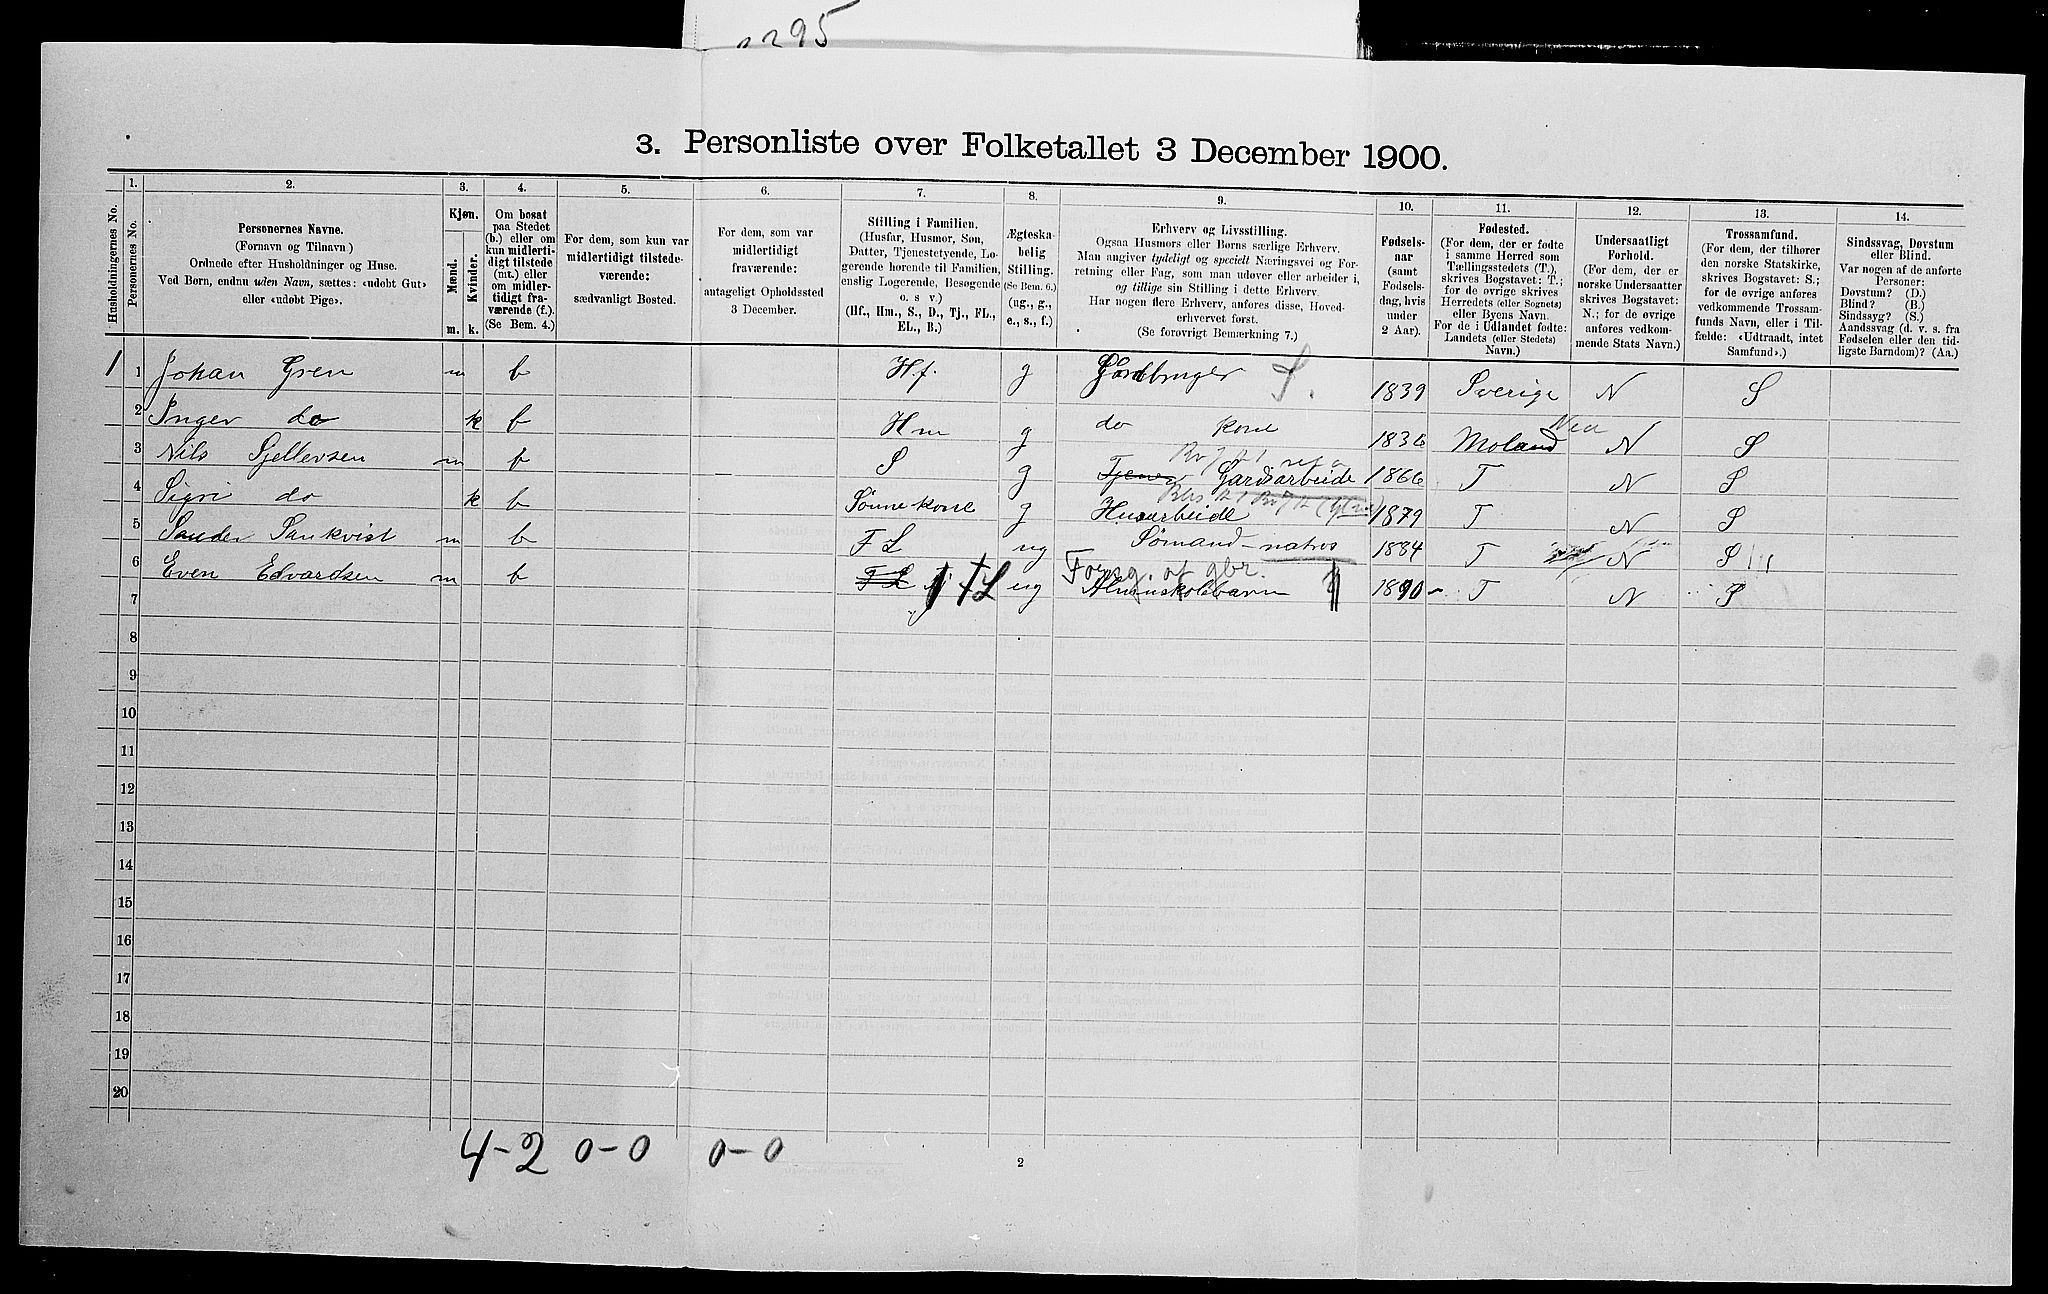 2295
3. Personliste over Folketallet 3 December 1900.
Husholdningernes No.
1.
Personernes No.
2.
Personernes Navne.
(Fornavn og Tilnavn.)
Ordnede efter Husholdninger og Huse.
Ved Børn, endnu uden Navn, sættes: «udøbt Gut»
eller «udøbt Pige».
3.
Kjøn.
Mænd.
Kvinder.
m. k.
4.
Om bosat
paa Stedet
(b.) eller om
kun midlerti-
digt tilstede
(mt.) eller
om midler-
tidigt fra-
værende (f.).
(Se Bem. 4.)
5.
For dem, som kun var
midlertidigt tilstede-
værende:
sædvanligt Bosted.
6.
For dem, som var
midlertidigt
fraværende:
antageligt Opholdssted
3 December.
7.
Stilling i Familien.
(Husfar, Husmor, Søn,
Datter, Tjenestetyende, Lo-
gerende hørende til Familien,
enslig Logerende, Besøgende
o. s v.)
(Hf., Hm., S., D., Tj., FL.,
EL., B.)
8.
Ægteska-
belig
Stilling.
(Se Bem. 6.)
(ug., g.,
e., s., f.)
9.
Erhverv og Livsstilling.
Ogsaa Husmors eller Børns særlige Erhverv.
Man angiver tydeligt og specielt Næringsvei og For-
retning eller Fag, som man udøver eller arbeider i,
og tillige sin Stilling i dette Erhverv.
Har nogen flere Erhverv, anføres disse, Hoved-
erhvervet først.
(Se forøvrigt Bemærkning 7.)
10.
Fødsels-
aar
(samt
Fødsels-
dag, hvis
under
2 Aar).
11.
Fødested.
(For dem, der er fødte
i samme Herred som
Tællingsstedets (T.),
skrives Bogstavet: T.;
for de øvrige skrives
Herredets (eller Sognets)
eller Byens Navn.
For de i Udlandet fødte:
Landets (eller Stedets)
Navn.)
12.
Undersaatligt
Forhold.
(For dem, der er
norske Undersaatter
skrives Bogstavet:
N.; for de øvrige
anføres vedkom-
mende Stats Navn.)
13.
Trossamfund.
(For dem, der tilhører
den norske Statskirke,
skrives Bogstavet: S.;
for de øvrige anføres
vedkommende Trossam-
funds Navn, eller i Til-
fælde: «Udtraadt, intet
Samfund».)
14.
Sindssvag, Døvstum
eller Blind.
Var nogen af de anførte
Personer:
Døvstum? (D.)
Blind? (B.)
Sindssyg? (S.)
Aandssvag (d. v. s. fra
Fødselen eller den tid-
ligste Barndom)? (Aa.)
1 1 Johan Gren m b H.f. g Gårdbruger S. 1839 Sverige N S
2 Inger do k b Hm g do kone 1836 Moland N S
3 Nils Gjellevsen m b S g Tjener Gårdsarbeide 1866 T N S
4 Sigri do k b Sønnekone g Husarbeide 1879 T N S
5 Sander Sankvist m b FL ug Sømand - matros 1884 T N S
6 Even Edvardsen m b FL FL ug Forsg. af gbr. Almuskolebarn 1890 T N S
7
8
9
10
11
12
13
14
15
16
17
18
19
20
4-2 0-0 0-0
2